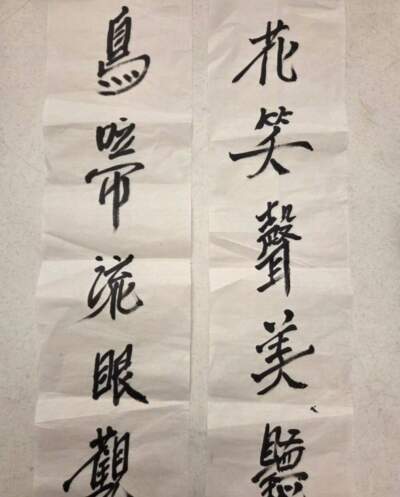 花笑聲美聽
鳥啼流眼觀